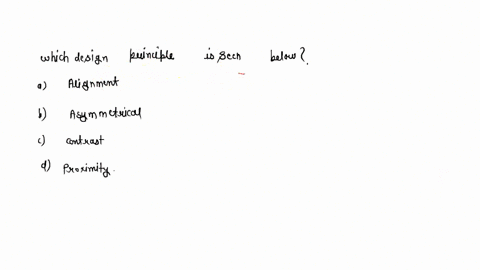 which design principle is seen below?
a) Alignment
b) Asymmetrical
c) contrast
d) Proximity.